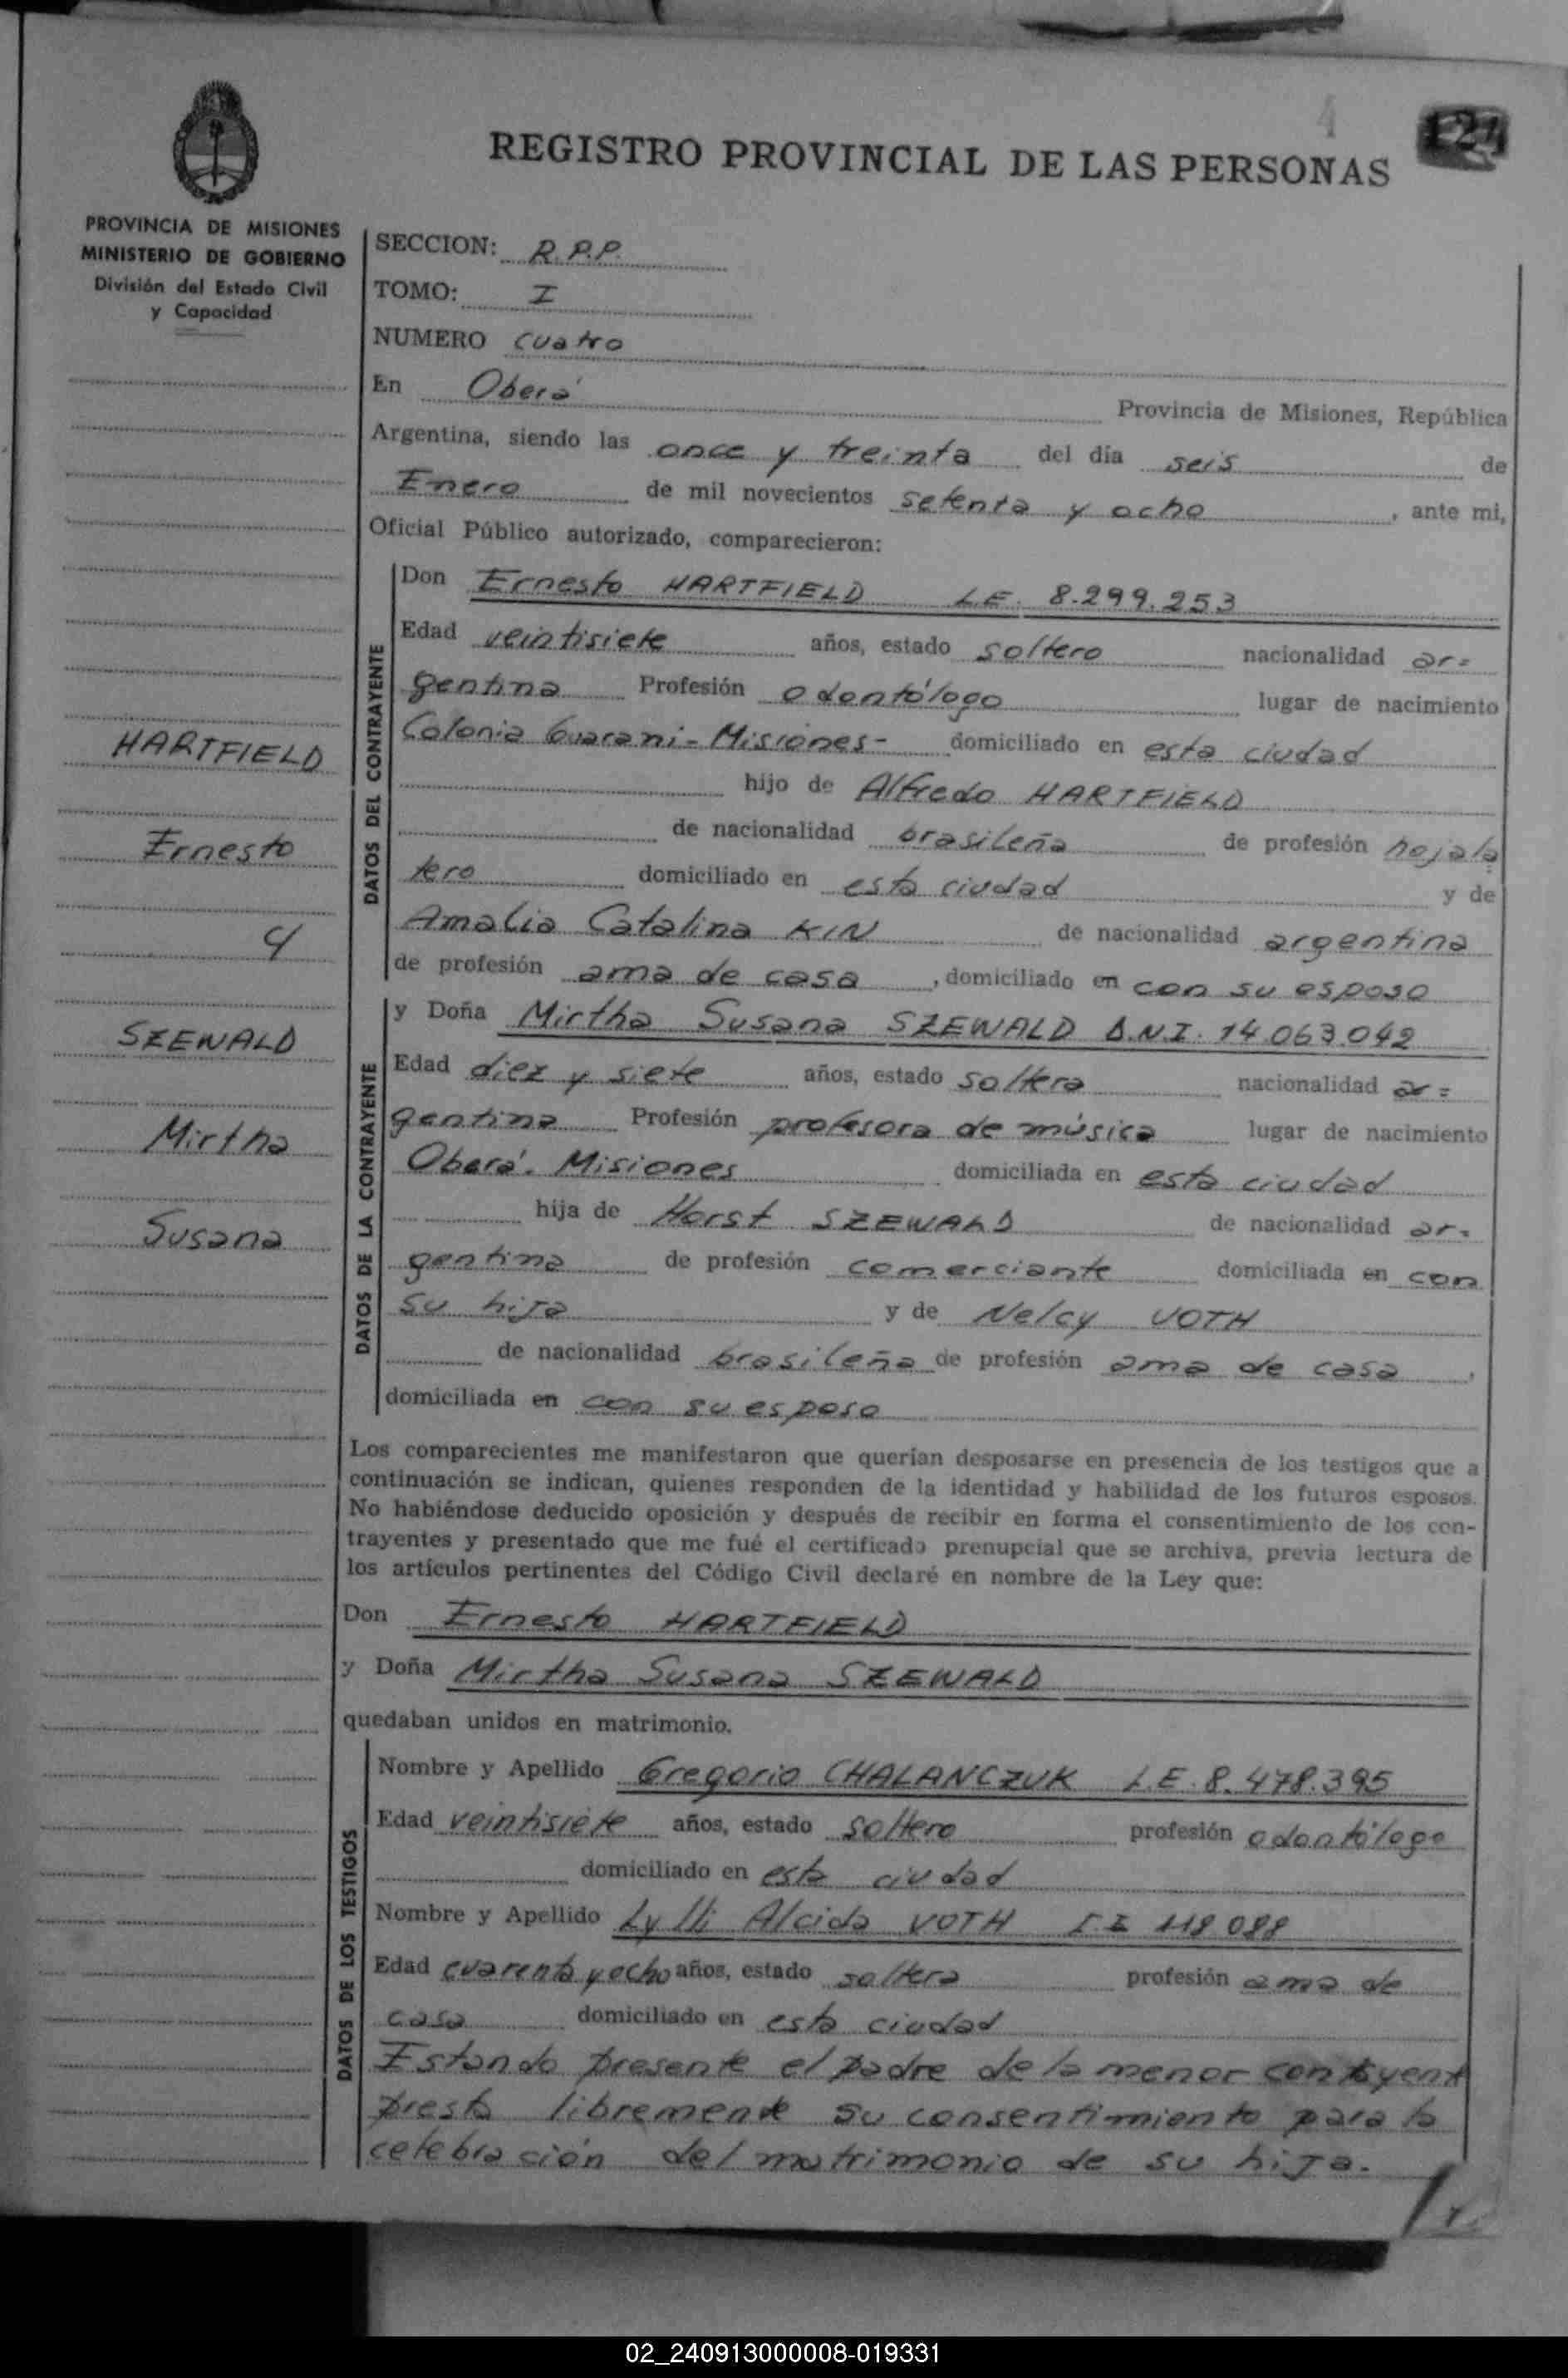 4
124
REGISTRO PROVINCIAL DE LAS PERSONAS
PROVINCIA DE MISIONES
MINISTERIO DE GOBIERNO
División del Estado Civil
y Capacidad
SECCION: R.P.P.
TOMO: I
NUMERO cuatro
En Oberá Provincia de Misiones, República
Argentina, siendo las once y treinta del día seis de
Enero de mil novecientos setenta y ocho, ante mi,
Oficial Público autorizado, comparecieron:
HARTFIELD
Ernesto
y
SZEWALD
Mirtha
Susana
DATOS DEL CONTRAYENTE
Don Ernesto HARTFIELD L.E. 8.299.253
Edad veintisiete años, estado soltero nacionalidad ar=
gentina Profesión odontólogo lugar de nacimiento
Colonia Guarani-Misiones- domiciliado en esta ciudad
hijo de Alfredo HARTFIELD
de nacionalidad brasileña de profesión hojala
tero domiciliado en esta ciudad y de
Amalia Catalina KIN de nacionalidad argentina
de profesión ama de casa, domiciliado en con su esposo
DATOS DE LA CONTRAYENTE
y Doña Mirtha Susana SZEWALD D.N.I. 14.063.042
Edad diez y siete años, estado soltera nacionalidad ar=
gentina Profesión profesora de música lugar de nacimiento
Oberá. Misiones domiciliada en esta ciudad
hija de Horst SZEWALD de nacionalidad ar=
gentina de profesión comerciante domiciliada en con
su hija y de Nelcy VOTH
de nacionalidad brasileña de profesión ama de casa,
domiciliada en con su esposo
Los comparecientes me manifestaron que querían desposarse en presencia de los testigos que a
continuación se indican, quienes responden de la identidad y habilidad de los futuros esposos.
No habiéndose deducido oposición y después de recibir en forma el consentimiento de los con-
trayentes y presentado que me fué el certificado prenupcial que se archiva, previa lectura de
los artículos pertinentes del Código Civil declaré en nombre de la Ley que:
Don Ernesto HARTFIELD
y Doña Mirtha Susana SZEWALD
quedaban unidos en matrimonio.
DATOS DE LOS TESTIGOS
Nombre y Apellido Gregorio CHALANCZUK L.E. 8.478.395
Edad veintisiete años, estado soltero profesión odontólogo
domiciliado en esta ciudad
Nombre y Apellido Lylli Alcida VOTH 118.088
Edad cuarenta y ocho años, estado soltera profesión ama de
casa domiciliado en esta ciudad
Estando presente el padre de la menor contrayent
presta libremente su consentimiento para la
celebración del matrimonio de su hija.
02_240913000008-019331